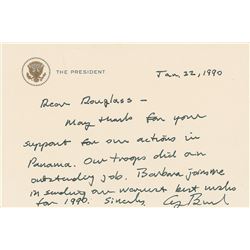 THE PRESIDENT
Jan, 22, 1990
Dear Douglass -
Many thanks for your
support for our actions in
Panama. Our troops did an
outstanding job. Barbara joins me
in sending our warmest best wishes
for 1990. Sincerely, G Bush